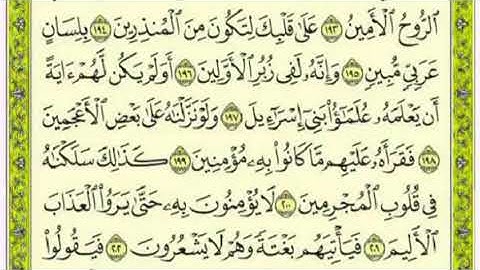 ٱلرُّوحُ ٱلْأَمِينُ ١٩٣ عَلَىٰ قَلْبِكَ لِتَكُونَ مِنَ ٱلْمُنذِرِينَ ١٩٤ بِلِسَانٍ
عَرَبِيٍّ مُّبِينٍ ١٩٥ وَإِنَّهُۥ لَفِى زُبُرِ ٱلْأَوَّلِينَ ١٩٦ أَوَلَمْ يَكُن لَّهُمْ ءَايَةً
أَن يَعْلَمَهُۥ عُلَمَٰٓؤُا۟ بَنِىٓ إِسْرَٰٓءِيلَ ١٩٧ وَلَوْ نَزَّلْنَٰهُ عَلَىٰ بَعْضِ ٱلْأَعْجَمِينَ
١٩٨ فَقَرَأَهُۥ عَلَيْهِم مَّا كَانُوا۟ بِهِۦ مُؤْمِنِينَ ١٩٩ كَذَٰلِكَ سَلَكْنَٰهُ
فِى قُلُوبِ ٱلْمُجْرِمِينَ ٢٠٠ لَا يُؤْمِنُونَ بِهِۦ حَتَّىٰ يَرَوُا۟ ٱلْعَذَابَ
ٱلْأَلِيمَ ٢٠١ فَيَأْتِيَهُم بَغْتَةً وَهُمْ لَا يَشْعُرُونَ ٢٠٢ فَيَقُولُوا۟